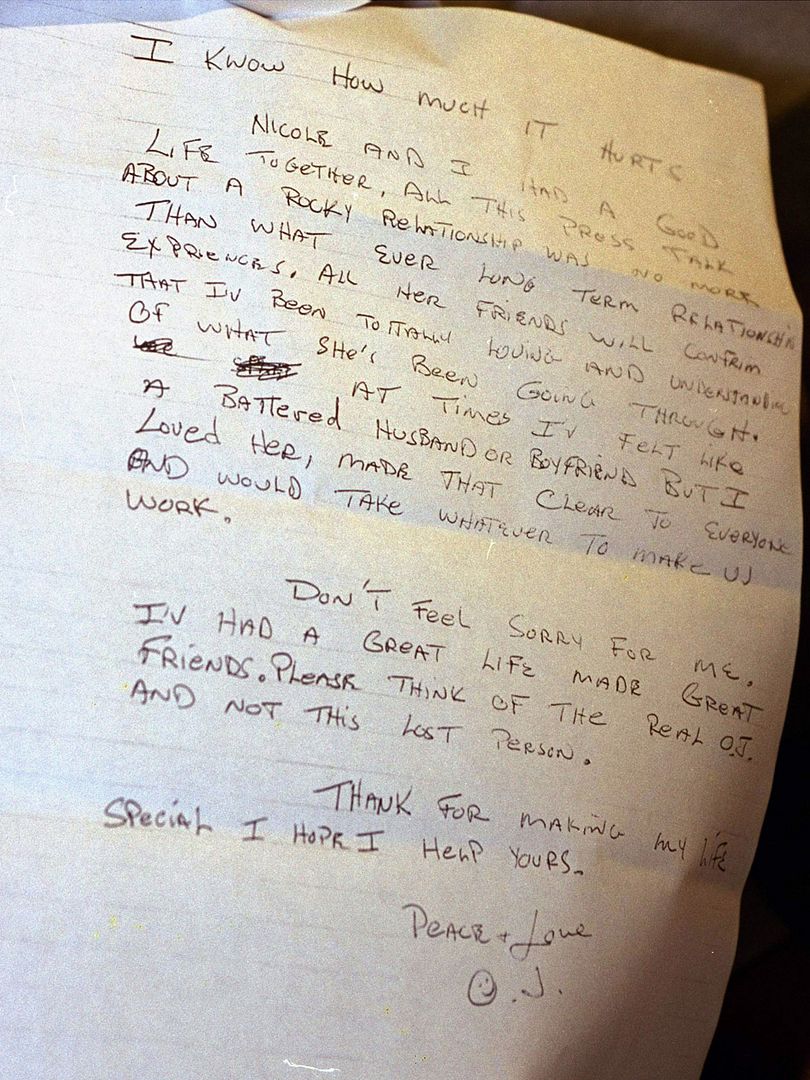 I KNOW HOW MUCH IT HURTS
NICOLE AND I HAD A GOOD
LIFE TOGETHER, ALL THIS PRESS TALK
ABOUT A ROCKY RELATIONSHIP WAS NO MORE
THAN WHAT EVER LONG TERM RELATIONSHIP
EXPRIENCES. ALL HER FRIENDS WILL CONFRIM
THAT IV BEEN TOTTALLY LOVING AND UNDERSTANDING
OF WHAT SHE'S BEEN GOING THROUGH.
AT TIMES I'V FELT LIKE
A BATTERED HUSBAND OR BOYFRIEND BUT I
LOVED HER, MADE THAT CLEAR TO EVERYONE
AND WOULD TAKE WHATEVER TO MAKE US
WORK.
DON'T FEEL SORRY FOR ME.
I'V HAD A GREAT LIFE MADE GREAT
FRIENDS. PLEASE THINK OF THE REAL O.J.
AND NOT THIS LOST PERSON.
THANK FOR MAKING MY LIFE
SPECIAL I HOPE I HELP YOURS.
PEACE + LOVE
O.J.